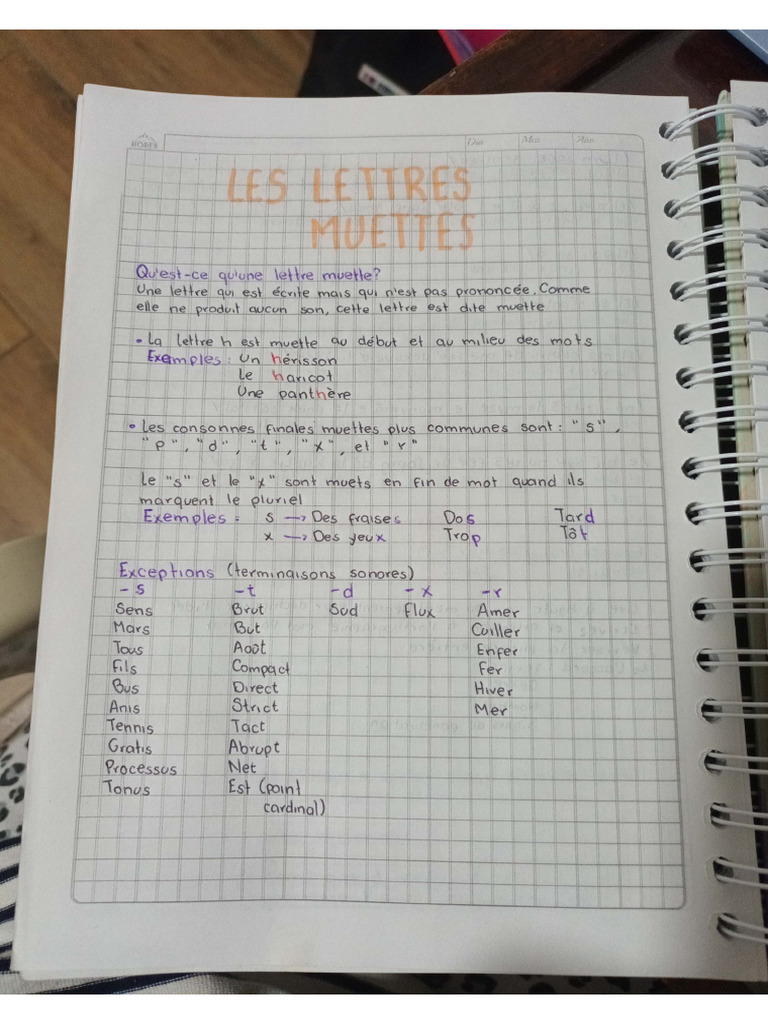 NORMA
Día Mes Año
LES LETTRES
MUETTES
Qu'est-ce qu'une lettre muette?
Une lettre qui est écrite mais qui n'est pas prononcée. Comme
elle ne produit aucun son, cette lettre est dite muette
• La lettre h est muette au début et au milieu des mots
Exemples: Un hérisson
Le haricot
Une panthère
• Les consonnes finales muettes plus communes sont: "s",
"p", "d", "t", "x", et "r"
Le "s" et le "x" sont muets en fin de mot quand ils
marquent le pluriel
Exemples: s → Des fraises Dos Tard
x → Des yeux Trop Tôt
Exceptions (terminaisons sonores)
-s -t -d -x -r
Sens Brut Sud Flux Amer
Mars But Cuiller
Tous Août Enfer
Fils Compact Fer
Bus Direct Hiver
Anis Strict Mer
Tennis Tact
Gratis Abrupt
Processus Net
Tonus Est (point
cardinal)